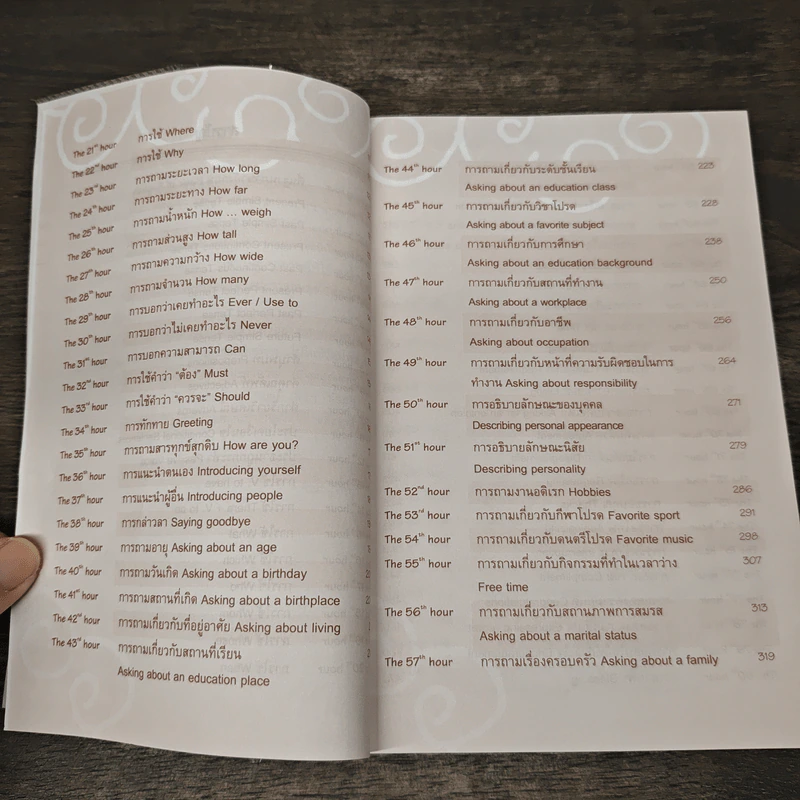 The 21st hour การใช้ Where
The 22nd hour การใช้ Why
The 23rd hour การถามระยะเวลา How long
The 24th hour การถามระยะทาง How far
The 25th hour การถามน้ำหนัก How ... weigh
The 26th hour การถามส่วนสูง How tall
The 27th hour การถามความกว้าง How wide
The 28th hour การถามจำนวน How many
The 29th hour การบอกว่าเคยทำอะไร Ever / Use to
The 30th hour การบอกว่าไม่เคยทำอะไร Never
The 31st hour การบอกความสามารถ Can
The 32nd hour การใช้คำว่า "ต้อง" Must
The 33rd hour การใช้คำว่า "ควรจะ" Should
The 34th hour การทักทาย Greeting
The 35th hour การถามสารทุกข์สุกดิบ How are you?
The 36th hour การแนะนำตนเอง Introducing yourself
The 37th hour การแนะนำผู้อื่น Introducing people
The 38th hour การกล่าวลา Saying goodbye
The 39th hour การถามอายุ Asking about an age
The 40th hour การถามวันเกิด Asking about a birthday
The 41st hour การถามสถานที่เกิด Asking about a birthplace
The 42nd hour การถามเกี่ยวกับที่อยู่อาศัย Asking about living
The 43rd hour การถามเกี่ยวกับสถานที่เรียน
Asking about an education place
The 44th hour การถามเกี่ยวกับระดับชั้นเรียน 223
Asking about an education class
The 45th hour การถามเกี่ยวกับวิชาโปรด 228
Asking about a favorite subject
The 46th hour การถามเกี่ยวกับการศึกษา 238
Asking about an education background
The 47th hour การถามเกี่ยวกับสถานที่ทำงาน 250
Asking about a workplace
The 48th hour การถามเกี่ยวกับอาชีพ 256
Asking about occupation
The 49th hour การถามเกี่ยวกับหน้าที่ความรับผิดชอบในการ 264
ทำงาน Asking about responsibility
The 50th hour การอธิบายลักษณะของบุคคล 271
Describing personal appearance
The 51st hour การอธิบายลักษณะนิสัย 279
Describing personality
The 52nd hour การถามงานอดิเรก Hobbies 286
The 53rd hour การถามเกี่ยวกับกีฬาโปรด Favorite sport 291
The 54th hour การถามเกี่ยวกับดนตรีโปรด Favorite music 298
The 55th hour การถามเกี่ยวกับกิจกรรมที่ทำในเวลาว่าง 307
Free time
The 56th hour การถามเกี่ยวกับสถานภาพการสมรส 313
Asking about a marital status
The 57th hour การถามเรื่องครอบครัว Asking about a family 319